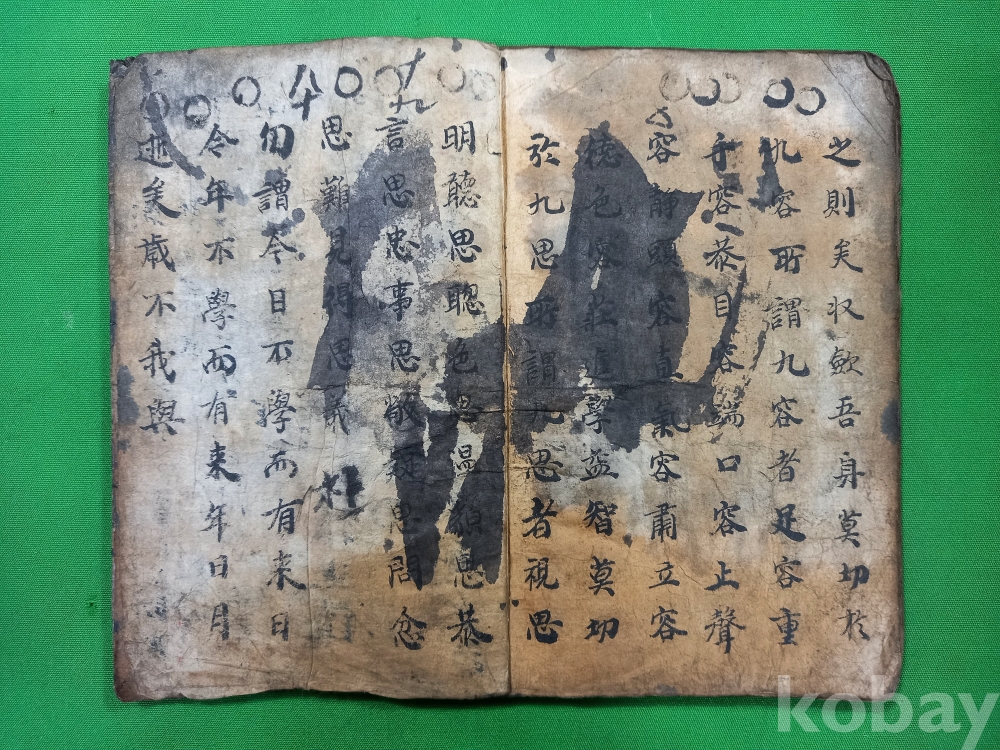 之則矣収斂吾身莫切於
九容所謂九容者足容重
手容恭目容端口容止聲
容静頭容直氣容肅立容
德色容莊進學益智莫切
於九思所謂九思者視思
明聽思聰色思温貌思恭
十九
言思忠事思敬疑思問忿
思難見得思義
八十
勿謂今日不學而有来日
今年不學而有来年日月
逝矣歲不我與
kobay